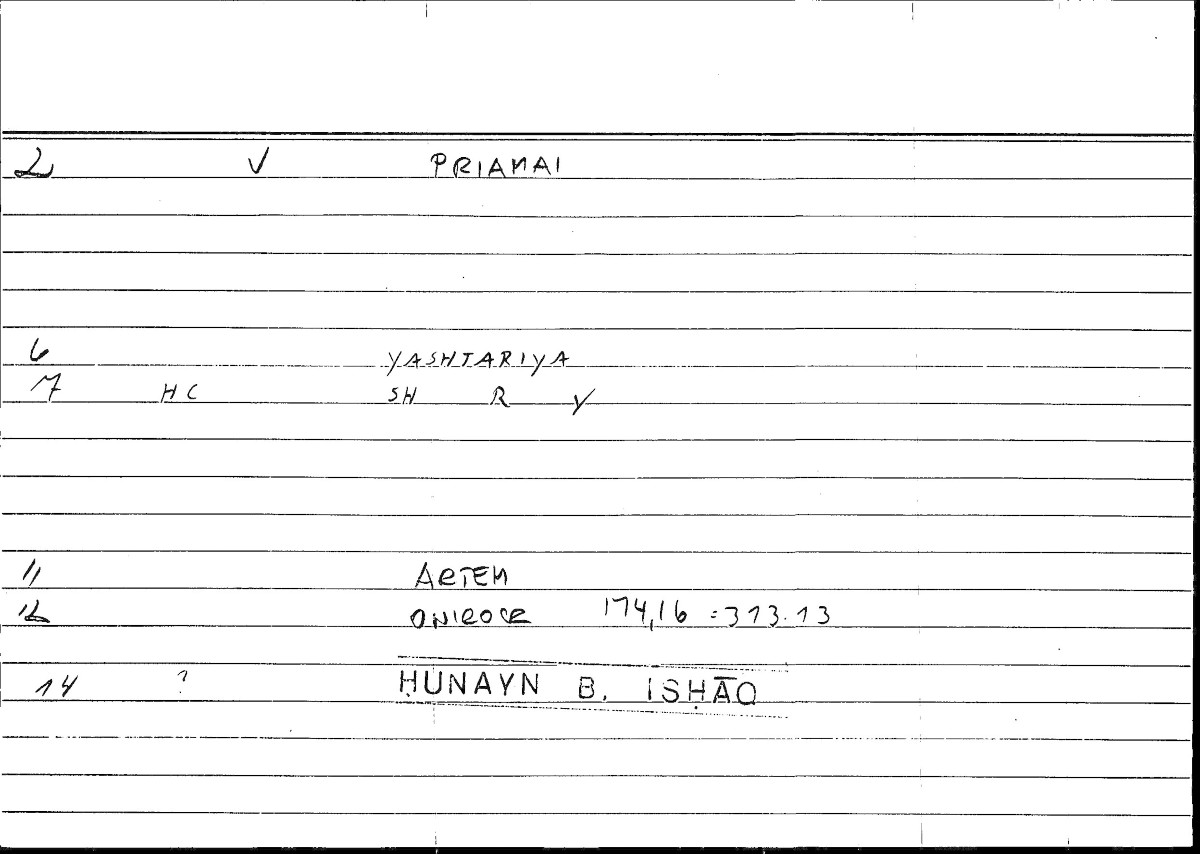 2 V PRIAMAI
6 YASHTARIYA
7 HC SH R Y
11 ARTEM
12 ONIROCR 174,16 =313.13
14 ? ḤUNAYN B. ISḤĀQ